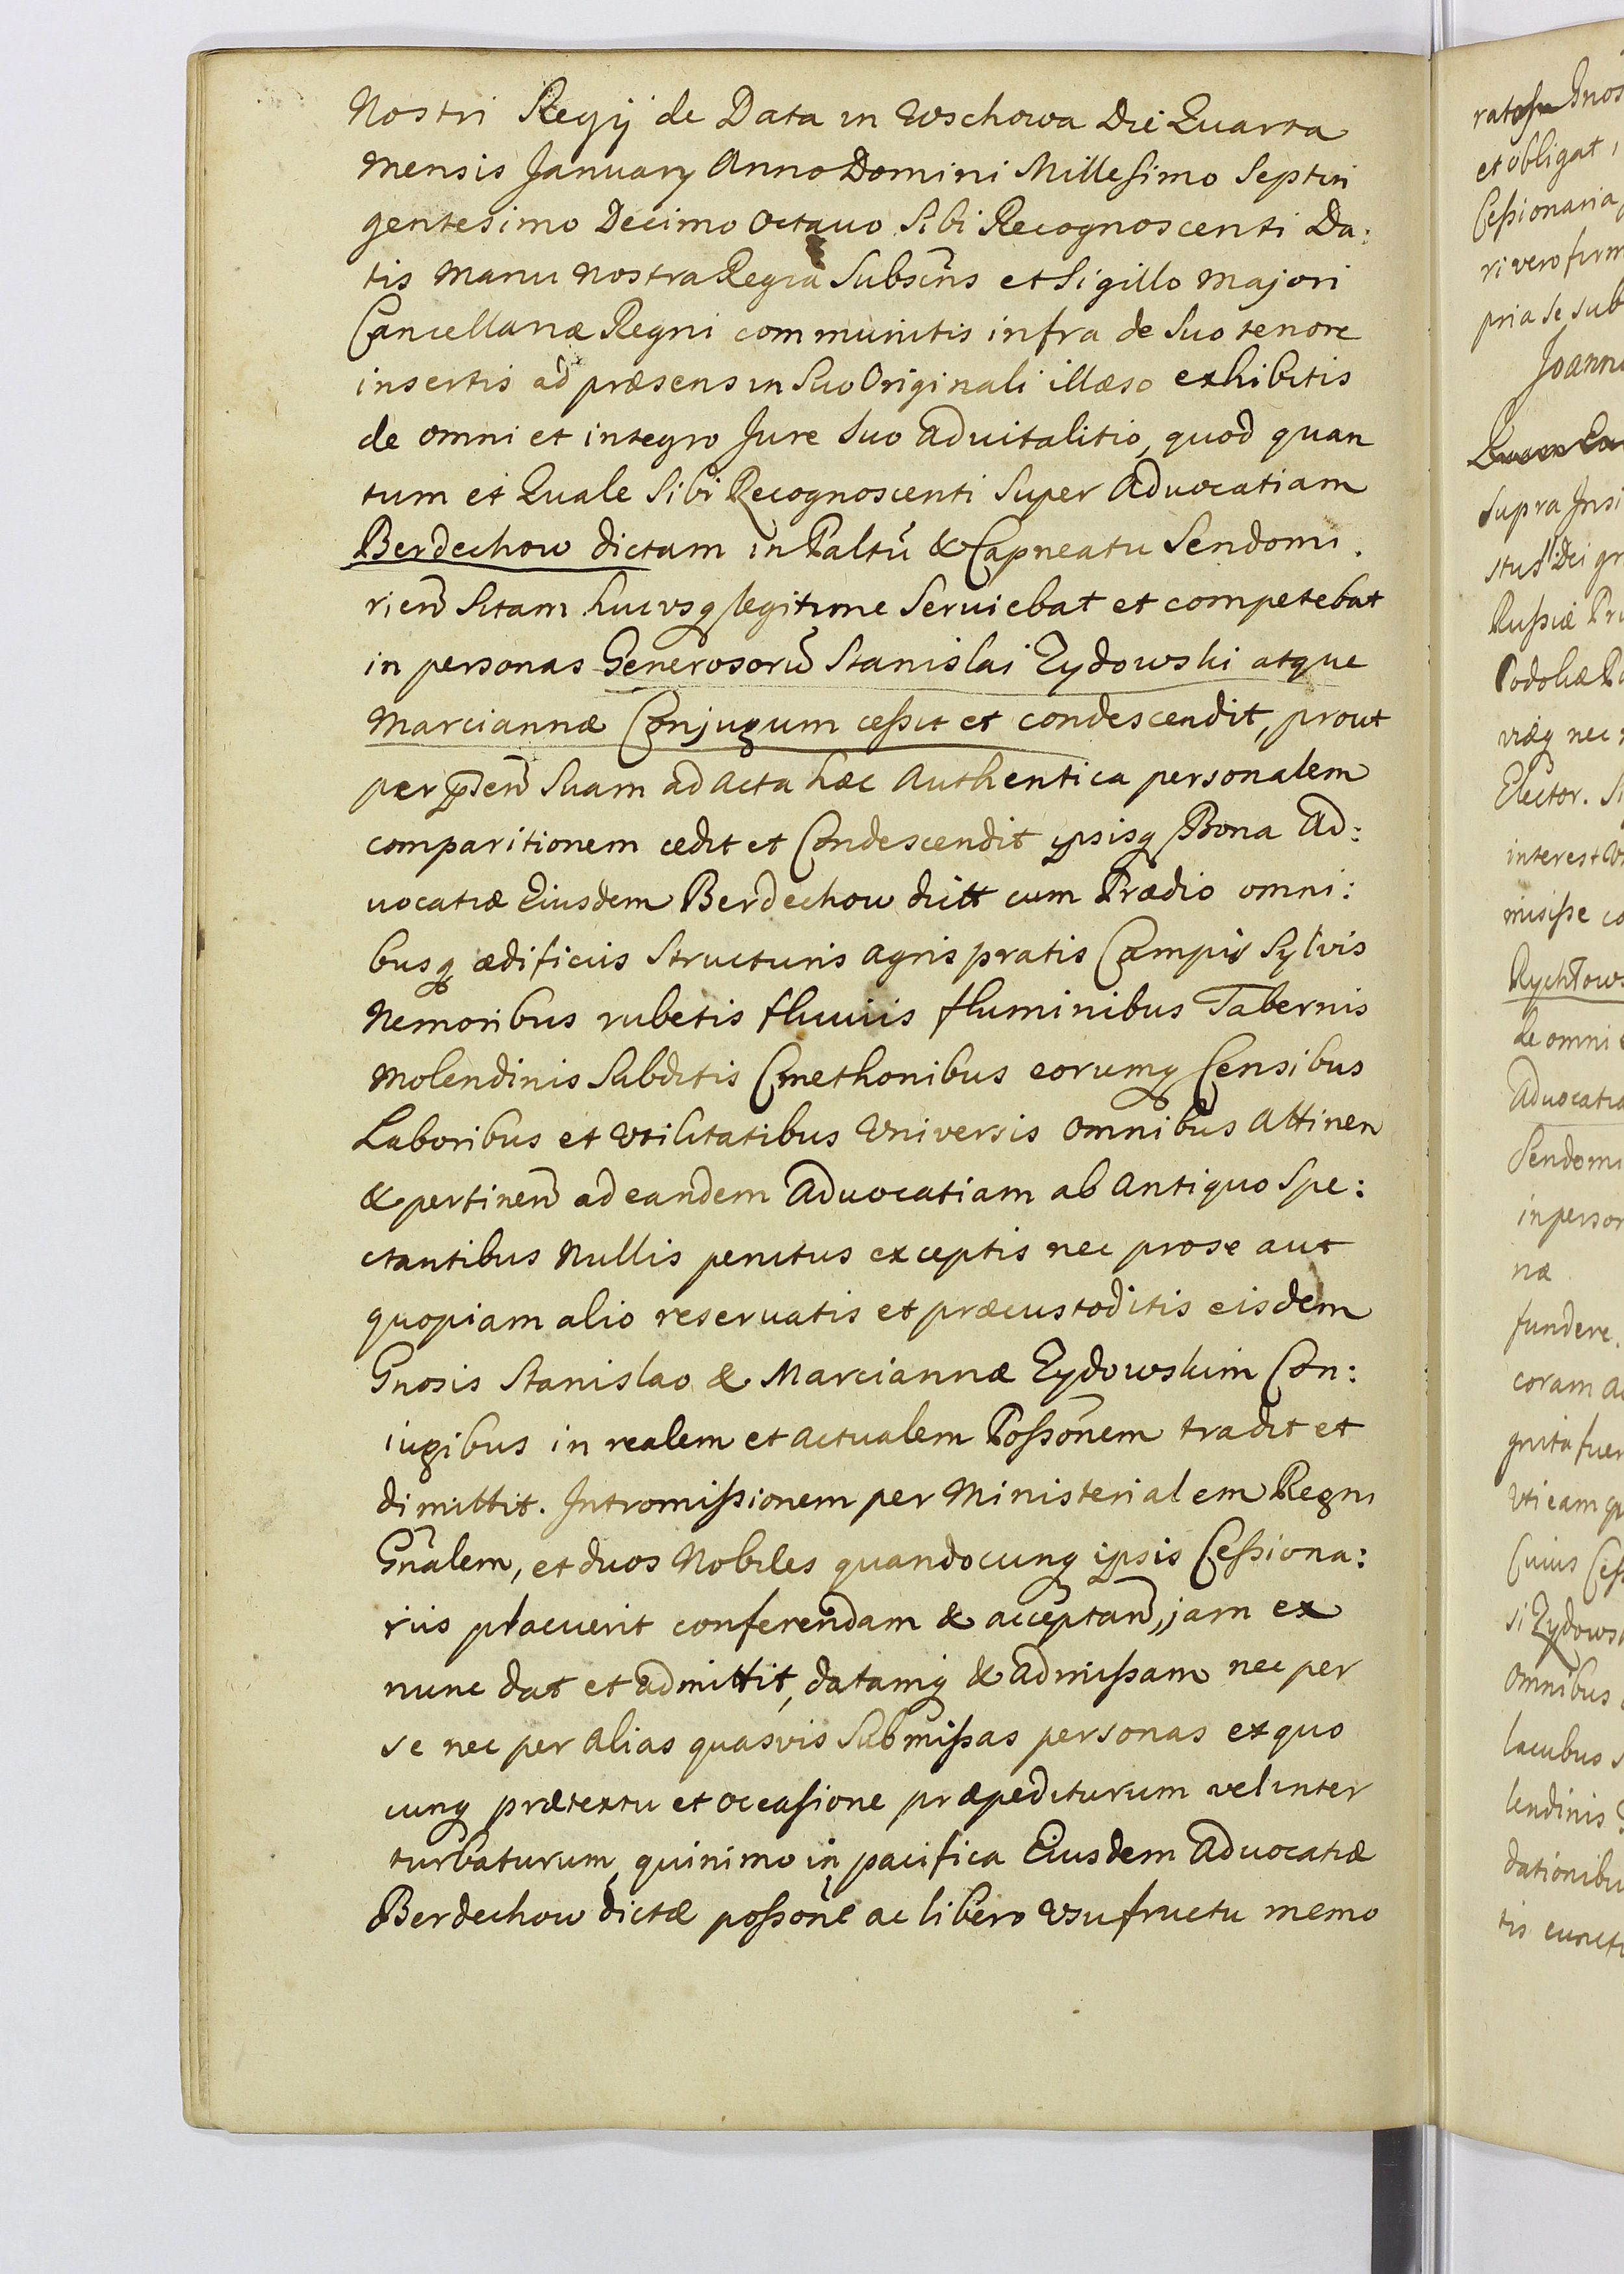 Nostri Regij de Data in Wschowa Die Quarta
Mensis January Anno Domini Millesimo Septin
gentesimo Decimo Octavo Sibi Recognoscenti Da:
tis Manu Nostra Regia Subscris et Sigillo Majori
Cancellariæ Regni communitis infra de Suo tenore
insertis ad præsens in Suo Originali illæso exhibitis
de omni et integro Jure Suo Advitalitio, quod quan
tum et Quale Sibi Recognoscenti Super Advocatiam
Berdechow dictam in Paltũ & Capneatu Sendomi.
rieñ Sitam hucusq legitime Serviebat et competebat
in personas Generosorũ Stanislai Zydowski atque
Marciannæ Conjugum cessit et condescendit, prout
per pñseñ Suam ad Acta hæc Authentica personalem
comparitionem cedit et Condescendit ipsisq Bona Ad:
vocatiæ Eiusdem Berdechow dictt cum Prædio omni:
busq ædificiis Structuris agris pratis Campis Sylvis
Nemoribus rubetis fluviis fluminibus Tabernis
Molendinis Subditis Cmethonibus eorumq Censibus
Laboribus et Utilitatibus Universis Omnibus Attinen
& pertineñ ad eandem Advocatiam ab Antiquo Spe:
ctantibus Nullis penitus exceptis nec pro se aut
quopiam alio reservatis et præcustoditis eisdem
Gnosis Stanislao & Marciannæ Zydowskim Con:
iugibus in realem et actualem Possõnem tradit et
dimittit. Intromissionem per Ministerialem Regni
Gñalem, et duos Nobiles quandocunq ipsis Cessiona:
riis placuerit conferendam & acceptañ, jam ex
nunc dat et admittit, datamq & admissam nec per
se nec per alias quasvis Submissas personas ex quo
cunq prætextu et occasione præpediturum vel inter
turbaturum, quinimo in pacifica Eiusdem Advocatiæ
Berdechow dictæ possõne ac libero Usufructu memo
et obligat
Cessionaria
ri vero firm
pria se sub
Joann
Supra Insi
Dei gr
Russiæ Pr
Podoliæ
viæq nec
Elector. S
interest
misisse co
Rychłows
de omni
Advocatia
Sendomi
in person
næ
fundere.
coram
gnita fuer
Uti eam
Cuius Cess
si Zydows
Omnibus
lacubus
lendinis
dationibu
tis cunct